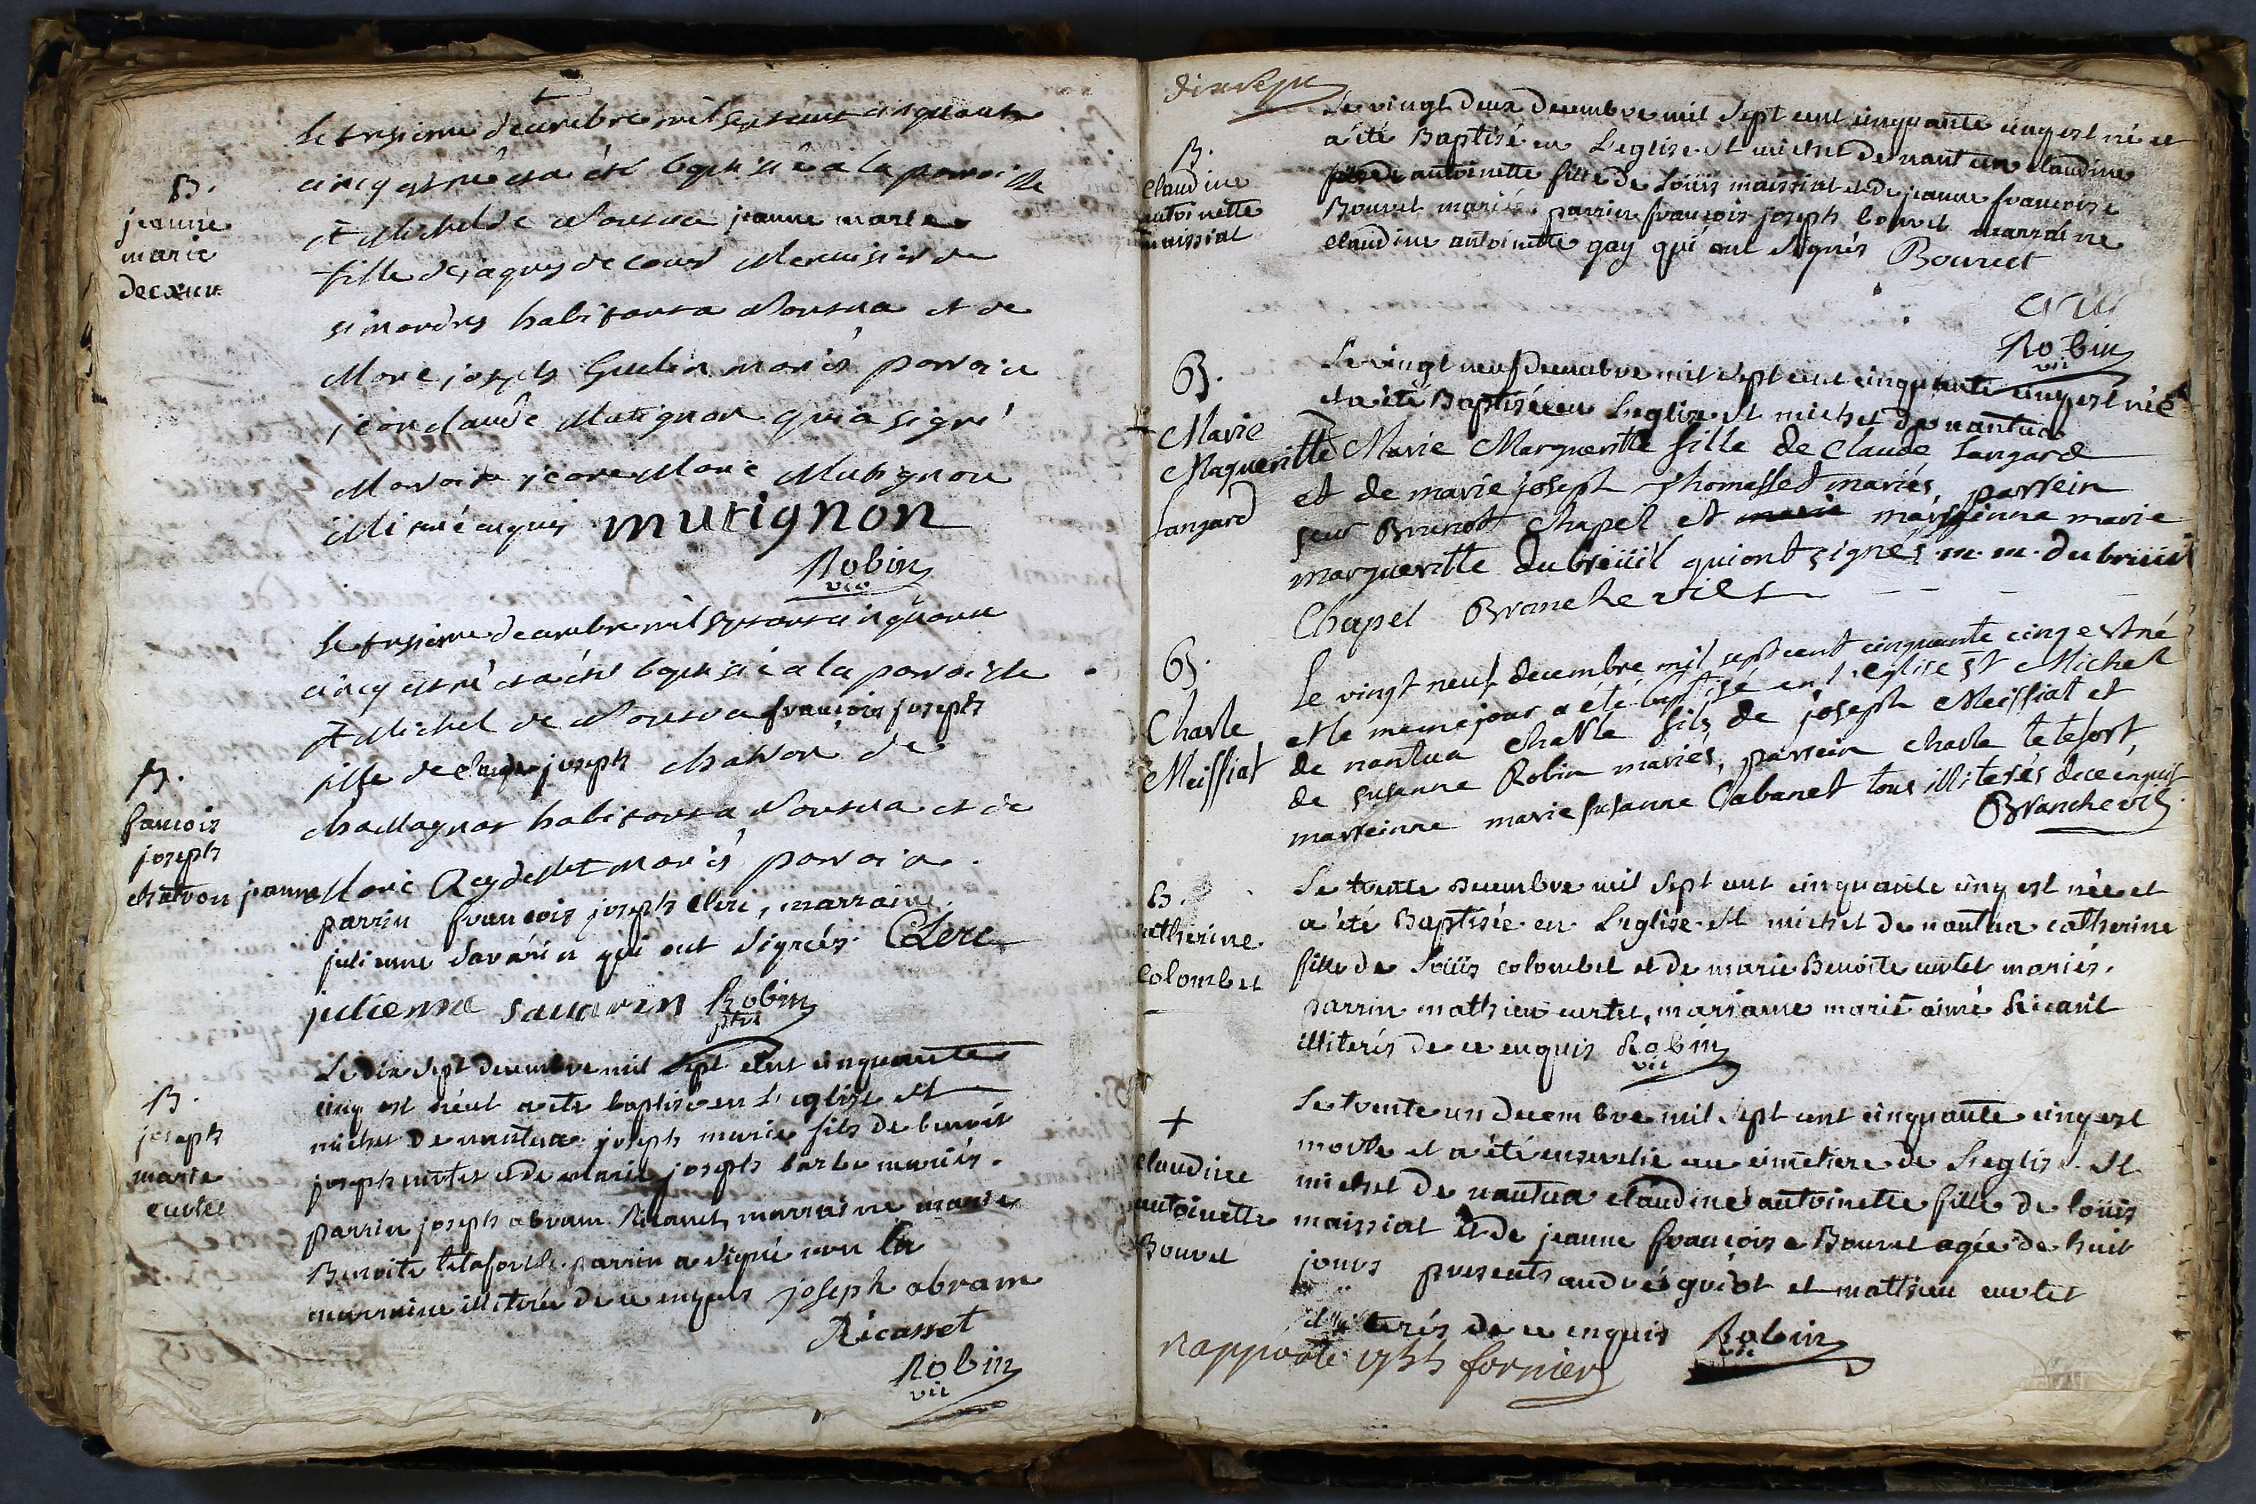 B.
jeanne
marie
decœur
Le tresieme decembre mil sept cent cinquante
cincq est né et a été baptisé a la parroisse
st Michel de Nantua jeanne marie
fille de jaques de coeur Menuisier de
simandres habitant a Nantua et de
Marie joseph Gudin mariés parrain
jean claude Mutignon qui a signé
Marraine jeane Marie Mutignon
illiterée enquis mutignon
Robin
vic
B.
fancois
joseph
chatron
Le tresieme decembre mil sept cent cinquante
cincq est né et a été baptisé a la parroisse
st Michel de Nantua francois joseph
fille de claude joseph chatron de
habitant a Nantua et de
jeanne Marie Reydellet mariés parrain
parrin francois joseph clerc, marraine
julienne Savarin qui ont signés. Clerc
julienne savarin Robin
B.
joseph
marie
curtet
Le dix sept decembre mil sept cent cinquante
cinq est né et a ete baptisé en L'eglise st
michel de nantua joseph marie fils de benoit
joseph curtet et de marie joseph barbe mariés.
parrin joseph abram Ricanet, marraine marie
Benoite parrin a signé non la
marraine illitérée de ce enquis joseph abram
Ricasset
Robin
vic
dixsept
B.
Claudine
antoinette
maissiat
Le vingt deux decembre mil sept cent cinquante cinq est née et
a été Baptisé en L'eglise st michel de nantua claudine
antoinette fille de Loüis maissiat et de jeanne francoise
Bouvet mariés. parrin francois joseph bouvet marraine
claudine antoinette gay qui ont signés Bouvet
Robin
vic
B.
Marie
Magueritte
Langard
Le vingt neuf decembre mil sept cent cinquante cinq est née
et a été Baptisée en L'eglise st michel de nantua
Marie Margueritte fille de Claude Langard
et de marie joseph Thomasset mariés, parrein
seur Brunot Chapel et marie marreinne marie
margueritte dubreüil qui ont signés. m. m. dubreüil
Chapel Branchevils
B.
Charle
Meissiat
Le vingt neuf decembre mil sept cent cinquante cinq est né
et le meme jour a été baptisé en l'eglise st Michel
de nantua charle fils de joseph Meissiat et
de susanne Robin mariés, parrein charle tetefort,
marreinne marie susanne Cabanet tous illiterés de ce enquis
Branchevils
B.
catherine
Colombet
Le trente decembre mil sept cent cinquante cinq est née et
a été Baptisée en L'eglise st michel de nantua catherine
fille de Loüis colombet et de marie Benoite curtet mariés.
parrin mathieu curtet, marraine marie aimé Ricanet
illiterés de ce enquis Robin
vic
+
claudine
antoinette
Bouvet
Le trente un decembre mil sept cent cinquante cinq est
morte et a été ensevelie au cimetiere de L'eglise st
michel de nantua claudine antoinette fille de loüis
maissiat et de jeanne francoise Bouvet agée de huit
jours presents andré guiot et mathieu curtet
illiterés de ce enquis Robin
vic
rapporté 1755 fornier